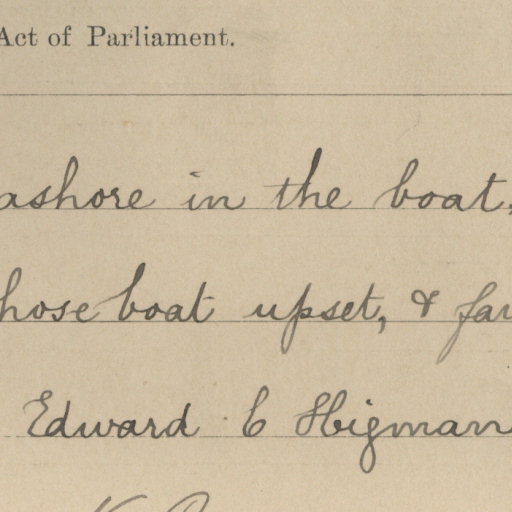 Act of Parliament.
ashore in the boat,
hose boat upset, & far
Edward C Higman